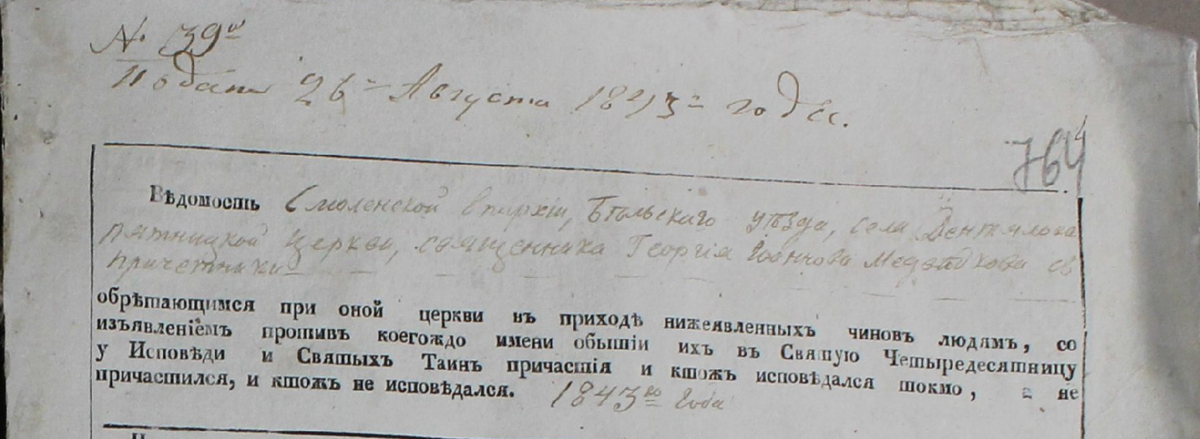 № 39й
Подано 26го Августа 1843го года.
764
Вѣдомость Смоленской Епархіи, Бѣльскаго уѣзда, села Вентялова
пятницкой Церкви, священника Георгія Іоаннова Медвѣдкова съ
причетники
обрѣтающимся при оной церкви въ приходѣ нижеявленныхъ чиновъ людямъ, со
изъявленіемъ противъ коегождо имени обышіи ихъ въ Святую Четыредесятницу
у Исповѣди и Святыхъ Таинъ причастія и ктожъ исповѣдался токмо, а не
причастился, и ктожъ не исповѣдался. 1843го Года